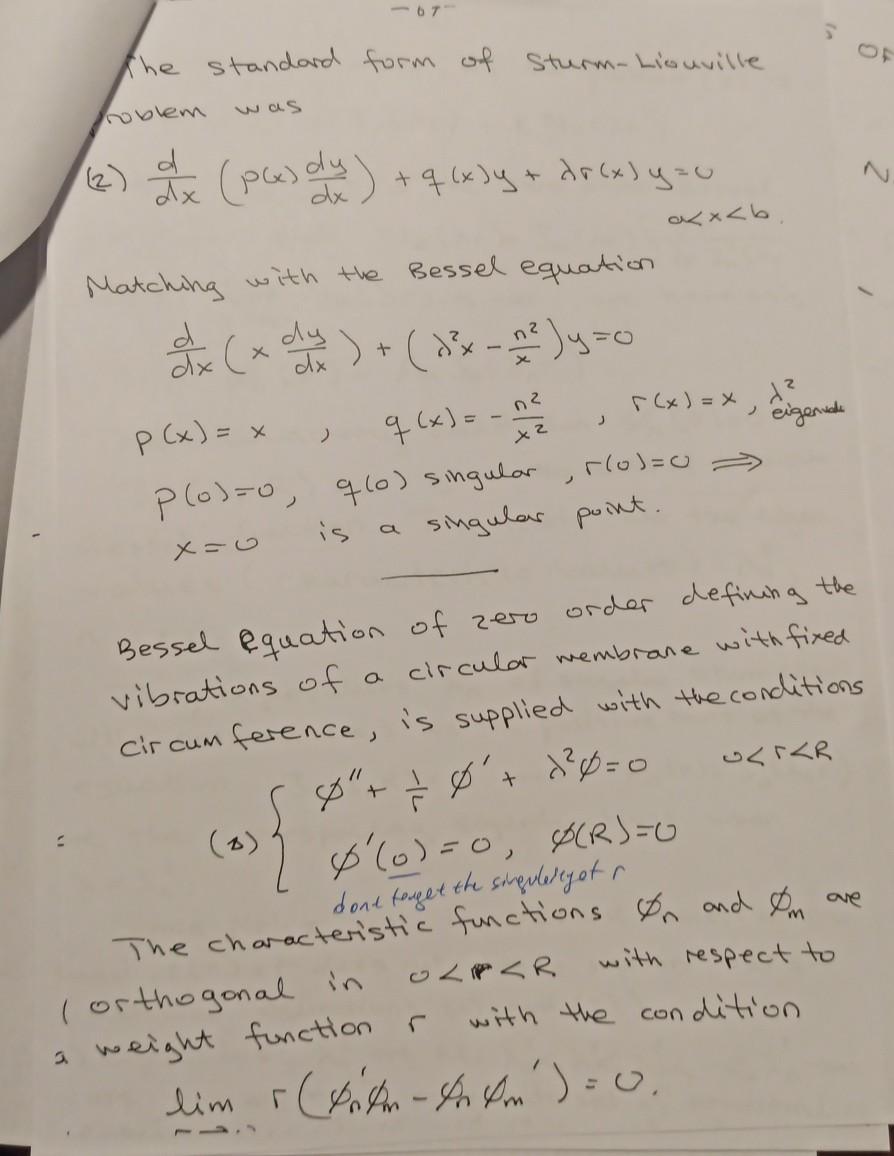 - 67 -
The standard form of Sturm-Liouville
problem was
(2) d/dx (p(x) dy/dx) + q(x)y + λr(x)y=0
a<x<b.
Matching with the Bessel equation
d/dx (x dy/dx) + (λ²x - n²/x)y=0
p(x) = x , q(x) = - n²/x² , r(x) = x , λ²
p(0)=0, q(0) singular, r(0)=0 ⟹
x=0 is a singular point.
Bessel Equation of zero order defining the
vibrations of a circular membrane with fixed
circumference, is supplied with the conditions
ϕ'' + 1/r ϕ' + λ²ϕ=0 0<r<R
ϕ'(0) = 0, ϕ(R)=0
dont forget the singularity of r
The characteristic functions ϕn and ϕm are
orthogonal in 0<r<R with respect to
a weight function r with the condition
lim r(ϕn'ϕm - ϕnϕm') = 0.